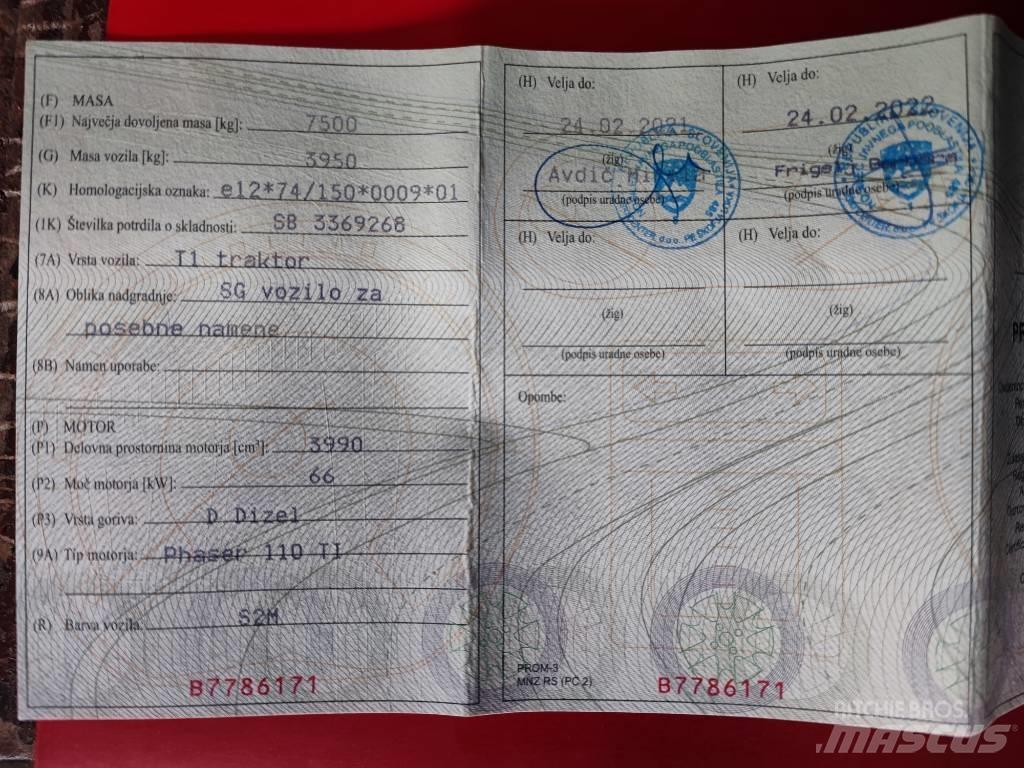 (F) MASA
(F1) Največja dovoljena masa [kg]: 7500
(G) Masa vozila [kg]: 3950
(K) Homologacijska oznaka: e12*74/150*0009*01
(1K) Številka potrdila o skladnosti: SB 3369268
(7A) Vrsta vozila: T1 traktor
(8A) Oblika nadgradnje: SG vozilo za
posebne namene
(8B) Namen uporabe:
(P) MOTOR
(P1) Delovna prostornina motorja [cm³]: 3990
(P2) Moč motorja [kW]: 66
(P3) Vrsta goriva: D Dizel
(9A) Tip motorja: Phaser 110 TI
(R) Barva vozila: S2M
B7786171
(H) Velja do:
24.02.2021
(žig)
Avdić
(podpis uradne osebe)
(H) Velja do:
24.02.2022
(žig)
(podpis uradne osebe)
(H) Velja do:
(žig)
(podpis uradne osebe)
(H) Velja do:
(žig)
(podpis uradne osebe)
Opombe:
PROM-3
MNZ RS (PC 2)
B7786171
RITCHIE BROS.
MASCUS